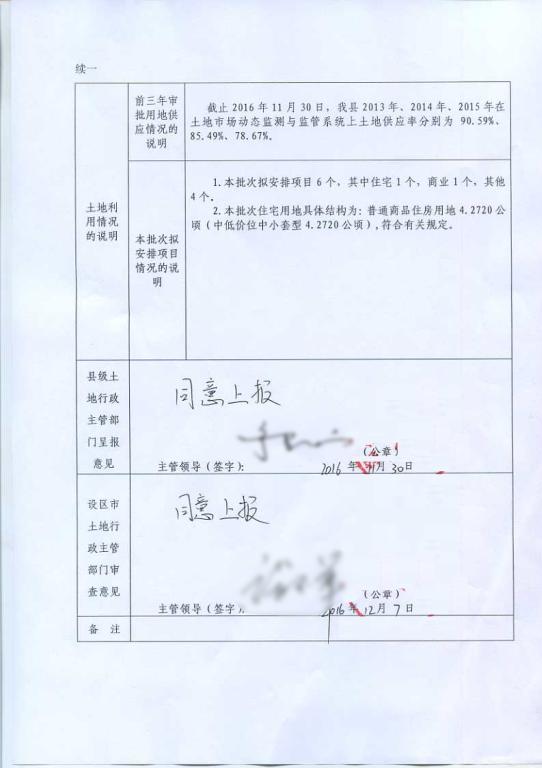 续一
前三年审
批用地供
应情况的
说明
截止2016年11月30日，我县2013年、2014年、2015年在
土地市场动态监测与监管系统上土地供应率分别为 90.59%、
85.49%、78.67%。
土地利
用情况
的说明
本批次拟
安排项目
情况的说
明
1.本批次拟安排项目6个，其中住宅1个，商业1个，其他
4个。
2.本批次住宅用地具体结构为：普通商品住房用地4.2720公
顷（中低价位中小套型4.2720公顷），符合有关规定。
县级土
地行政
主管部
门呈报
意见
同意上报
（公章）
主管领导（签字）：
2016年11月30日
设区市
土地行
政主管
部门审
查意见
同意上报
（公章）
主管领导（签字）：
2016年12月7日
备 注